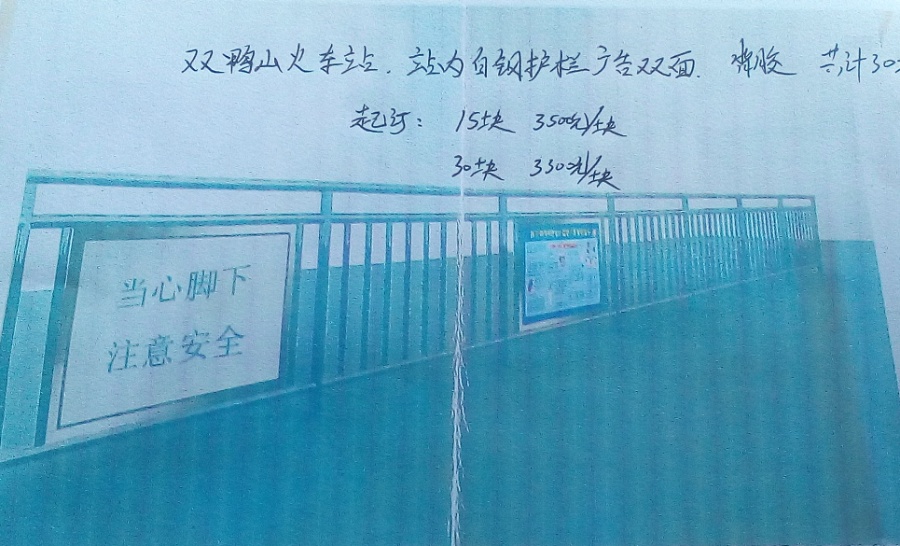 双鸭山火车站.站内白钢护栏广告双面. 共计30
起订: 15块 3500元/块
30块 3300元/块
当心脚下
注意安全